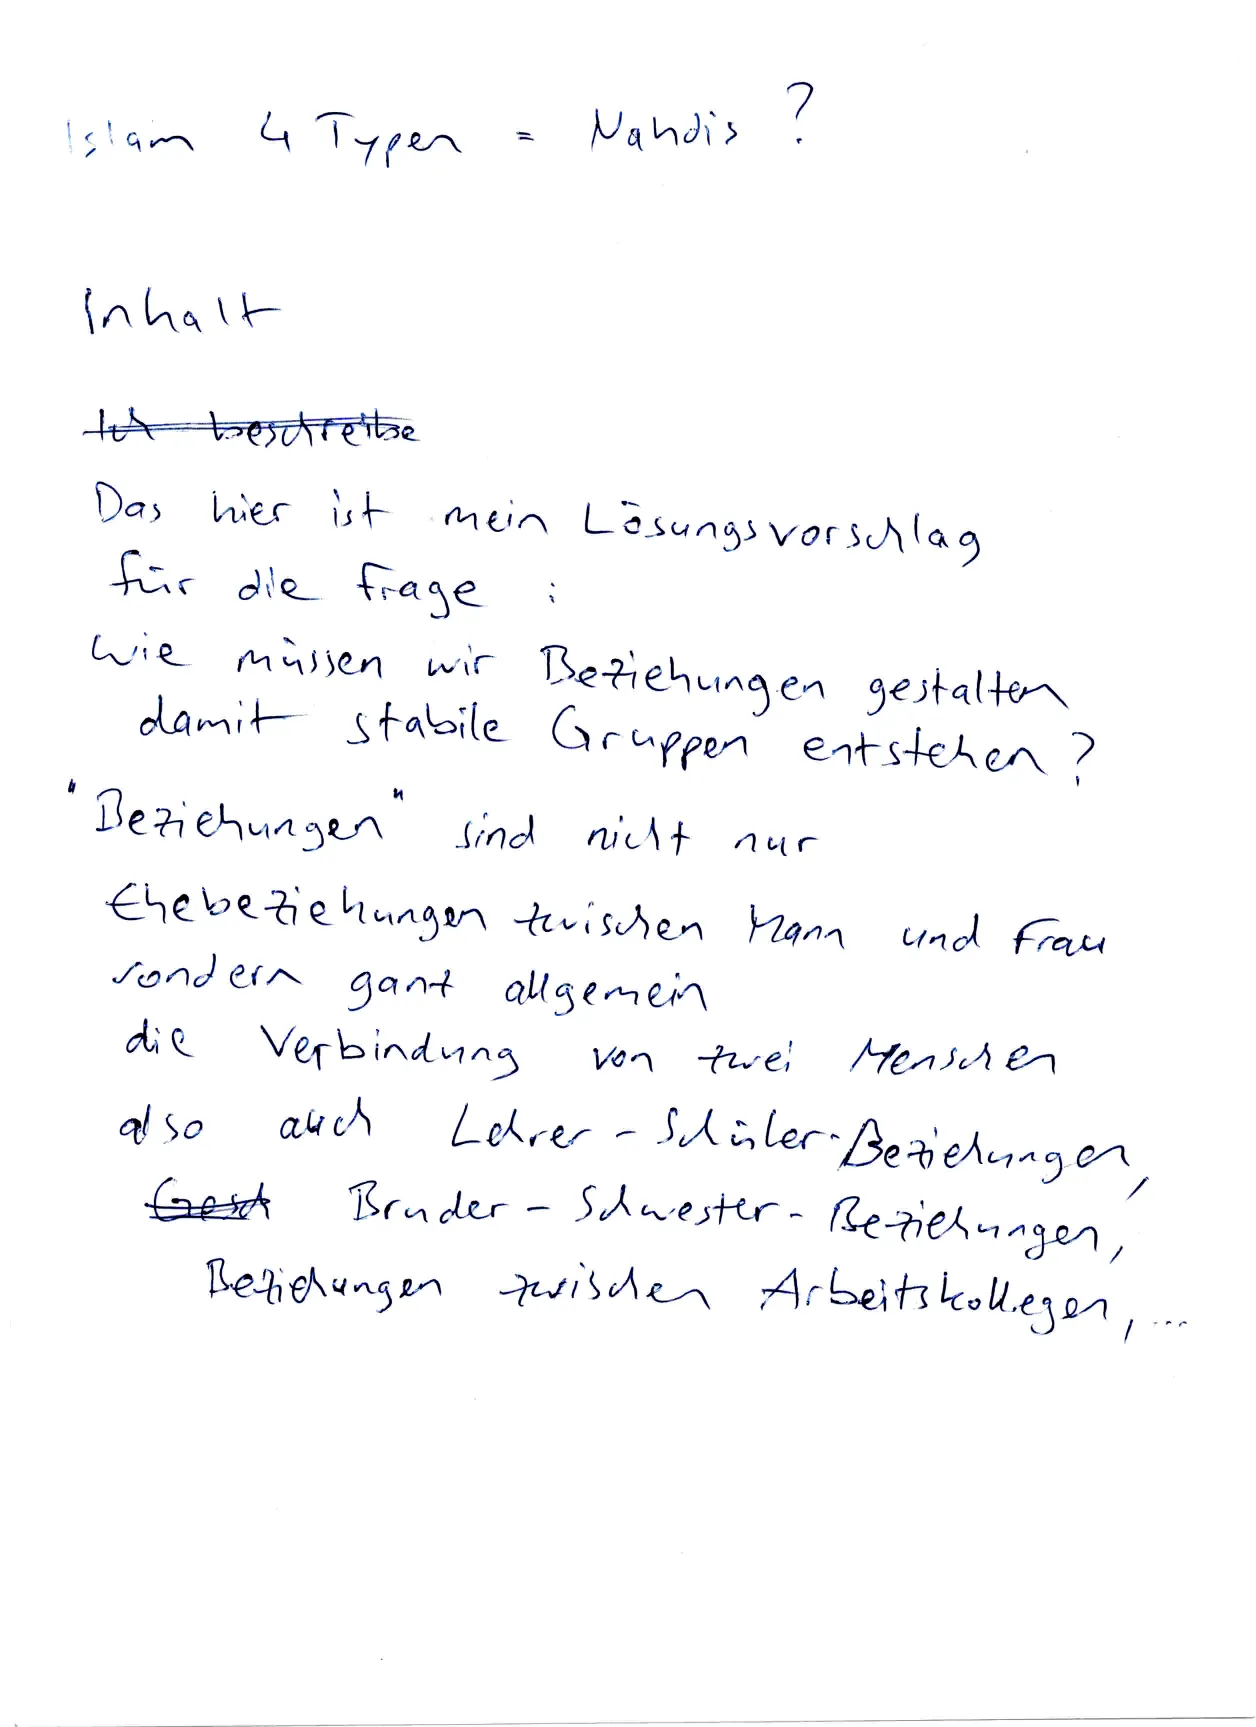 Islam 4 Typen = Nahdis ?
Inhalt
Ich beschreibe
Das hier ist mein Lösungsvorschlag
für die Frage :
Wie müssen wir Beziehungen gestalten
damit stabile Gruppen entstehen ?
"Beziehungen" sind nicht nur
Ehebeziehungen zwischen Mann und Frau
sondern ganz allgemein
die Verbindung von zwei Menschen
also auch Lehrer-Schüler-Beziehungen,
Gesch Bruder-Schwester-Beziehungen,
Beziehungen zwischen Arbeitskollegen, ...